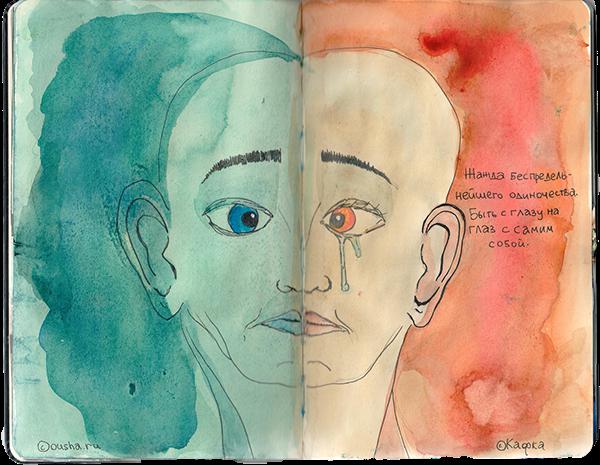 Жажда беспредель-
нейшего одиночества.
Быть с глазу на
глаз с самим
собой.
©ousha.ru
©Кафка